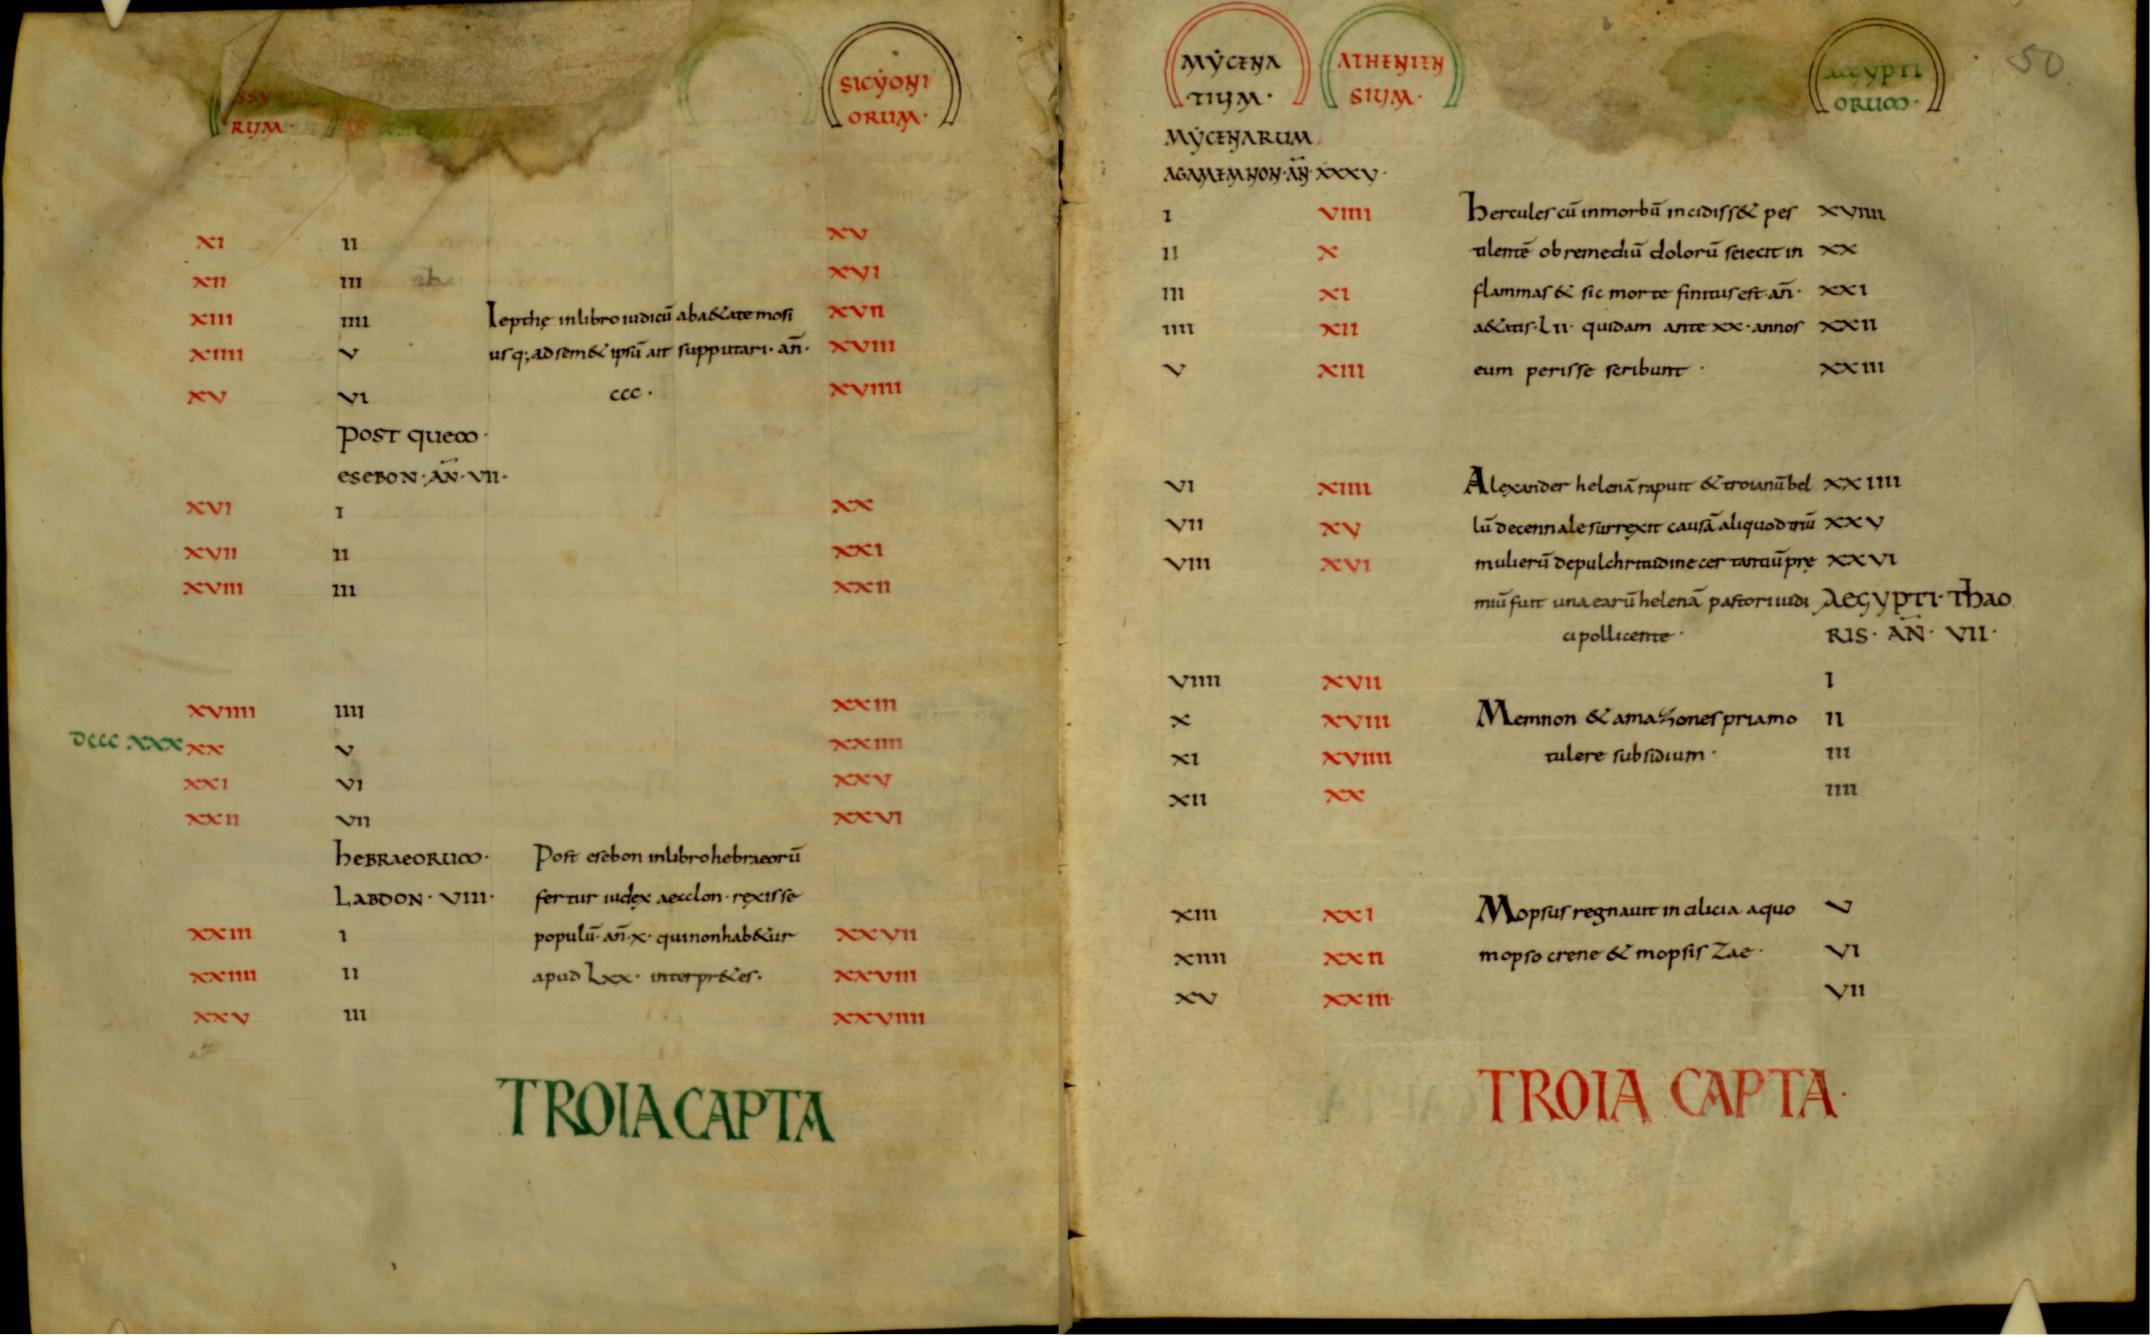 RUM·
SICYONI
ORUM·
XI II XV
XII III XVI
XIII IIII Iepthę inlibro iudicū aba&ate mosi XVII
XIIII V usq; ad sem & ipsū ait supputari· an̄· XVIII
XV VI ccc· XVIIII
POST QUEM·
ESEBON·AN̄·VII·
XVI I XX
XVII II XXI
XVIII III XXII
XVIIII IIII XXIII
DCCC XXX XX V XXIIII
XXI VI XXV
XXII VII XXVI
HEBRAEORUM· Post esebon inlibro hebraeorū
LABDON·VIII· fertur iudęx aecclon· ręxisse
XXIII I populū· an̄·x· quinonhab&ur XXVII
XXIIII II apud Lxx· interpr&es· XXVIII
XXV III XXVIIII
TROIA CAPTA
MYCENA
TIUM·
ATHENIEN
SIUM·
AEGYPTI
ORUM·
50
MYCENARUM
AGAMEMNON·AN̄·XXXV·
I VIIII Hercules cū inmorbū incidiss& pes XVIIII
II X tilentē ob remediū dolorū seiecit in XX
III XI flammas & sic morte finitus est· an̄· XXI
IIII XII a&atis·Lii· quidam ante xx· annos XXII
V XIII eum perisse scribunt· XXIII
VI XIIII Alexander helenā rapuit & troianū bel XXIIII
VII XV lū decennale surręxit causā aliquod triū XXV
VIII XVI mulierū depulchritudine cer tantiū prę XXVI
miū fuit una earū helenā pastori iudi AEGYPTI·THAO
ci pollicente· RIS·AN̄·VII·
VIIII XVII I
X XVIII Memnon & amazones priamo II
XI XVIIII tulere subsidium· III
XII XX IIII
XIII XXI Mopsus regnauit in cilicia aquo V
XIIII XXII mopso crene & mopsis Zae· VI
XV XXIII VII
TROIA CAPTA·